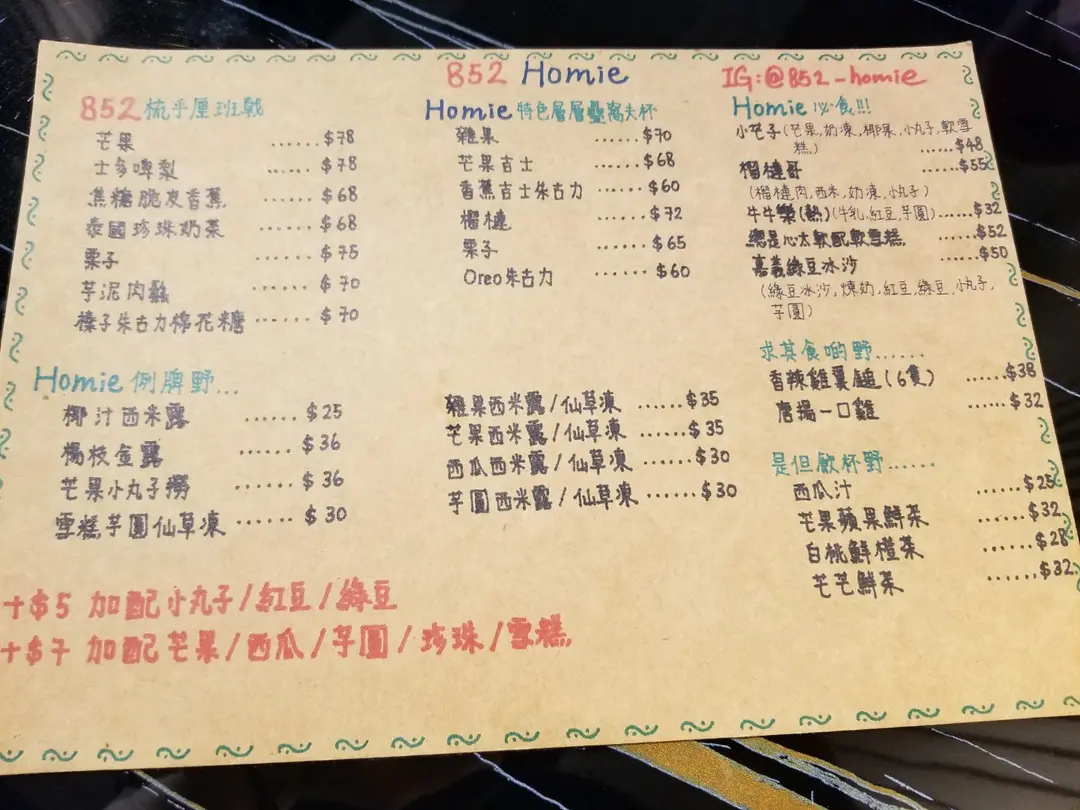 852 Homie
IG:@852-homie
852梳乎厘班戟
芒果 ......$78
士多啤梨 ......$78
焦糖脆皮香蕉 ......$68
泰國珍珠奶茶 ......$68
栗子 ......$75
芋泥肉鬆 ......$70
榛子朱古力棉花糖 ......$70
Homie特色層層疊窩夫杯
雜果 ......$70
芒果吉士 ......$68
香蕉吉士朱古力 ......$60
榴槤 ......$72
栗子 ......$65
Oreo朱古力 ......$60
Homie必食!!!
小芒子(芒果,奶凍,椰果,小丸子,軟雪
糕) ......$48
榴槤哥 ......$55
(榴槤肉,西米,奶凍,小丸子)
牛牛樂(熱)(牛乳,紅豆,芋圓)......$32
總是心太軟配軟雪糕 ......$52
嘉義綠豆冰沙 ......$50
(綠豆冰沙,煉奶,紅豆,綠豆,小丸子,
芋圓)
Homie例牌野...
椰汁西米露 ......$25
楊枝金露 ......$36
芒果小丸子撈 ......$36
雪糕芋圓仙草凍 ......$30
雜果西米露/仙草凍 ......$35
芒果西米露/仙草凍 ......$35
西瓜西米露/仙草凍 ......$30
芋圓西米露/仙草凍 ......$30
求其食啲野......
香辣雞翼鎚(6隻) ......$38
唐揚一口雞 ......$32
是但飲杯野......
西瓜汁 ......$25
芒果蘋果鮮茶 ......$32
白桃鮮橙茶 ......$28
芒芒鮮茶 ......$32
+$5 加配小丸子/紅豆/綠豆
+$7 加配芒果/西瓜/芋圓/珍珠/雪糕